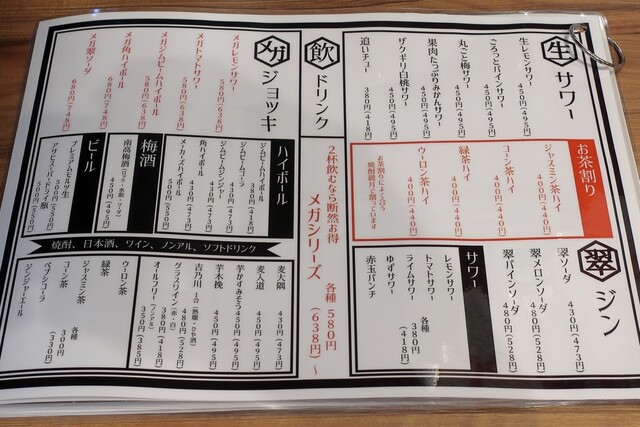 生 サワー
生レモンサワー 450円(495円)
ごろっとパインサワー 450円(495円)
丸ごと梅サワー 450円(495円)
果肉たっぷりみかんサワー 450円(495円)
ザクギリ白桃サワー 450円(495円)
追いチュー 380円(418円)
お茶割り
ジャスミン茶ハイ 400円(440円)
コーン茶ハイ 400円(440円)
緑茶ハイ 400円(440円)
ウーロン茶ハイ 400円(440円)
お茶割りによく合う
焼酎鏡月で割っています
翠 ジン
翠ソーダ 430円(473円)
翠メロンソーダ 480円(528円)
翠パインソーダ 480円(528円)
サワー
レモンサワー
トマトサワー
ライムサワー
ゆずサワー
赤玉パンチ
各種 380円(418円)
飲 ドリンク
2杯飲むなら断然お得
メガシリーズ 各種 580円(638円)~
メガ ジョッキ
メガレモンサワー 580円(638円)
メガトマトサワー 580円(638円)
メガジムビームハイボール 580円(638円)
メガ角ハイボール 680円(748円)
メガ翠ソーダ 680円(748円)
ハイボール
ジムビームハイボール 380円(418円)
ジムビームコーラ 430円(473円)
ジムビームジンジャー 430円(473円)
角ハイボール 430円(473円)
メーカーズハイボール 500円(550円)
梅酒
南高梅酒(ロック・水割・ソーダ) 450円(495円)
ビール
プレミアムモルツ生 500円(550円)
アサヒスーパードライ瓶 500円(550円)
焼酎、日本酒、ワイン、ノンアル、ソフトドリンク
麦大隅 430円(473円)
麦入道 450円(495円)
芋かすみそう 450円(495円)
芋木挽 450円(495円)
吉乃川 1合(熱燗・ひや酒) 480円(528円)
グラスワイン(赤・白) 380円(418円)
オールフリー(ノンアル) 350円(385円)
ウーロン茶
緑茶
ジャスミン茶
コーン茶
ペプシコーラ
ジンジャーエール
各種 300円(330円)